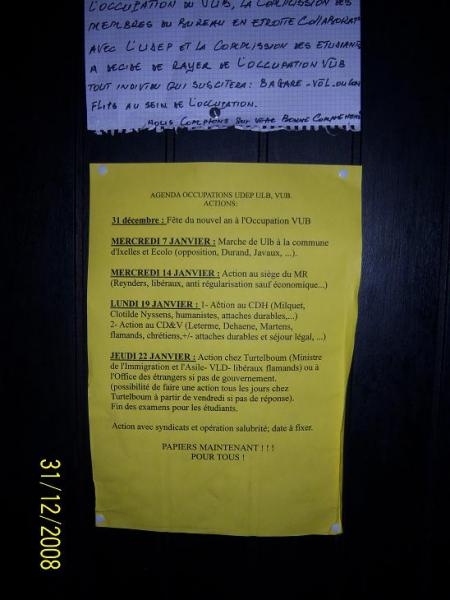 L'OCCUPATION DU VUB, LA COMMISSION DES
MEMBRES DU BUREAU EN ETROITE COLLABORAT
AVEC L'UDEP ET LA COMMISSION DES ETUDIANT
A DECIDE DE RAYER DE L'OCCUPATION VUB
TOUT INDIVIDU QUI SUSCITERA: BAGARE - VOL - OU CON
FLITS AU SEIN DE L'OCCUPATION.
NOUS COMPTONS SUR VOTRE BONNE COMPREHENS
AGENDA OCCUPATIONS UDEP ULB, VUB.
ACTIONS:
31 décembre : Fête du nouvel an à l'Occupation VUB
MERCREDI 7 JANVIER : Marche de Ulb à la commune
d'Ixelles et Ecolo (opposition, Durand, Javaux, ...).
MERCREDI 14 JANVIER : Action au siège du MR
(Reynders, libéraux, anti régularisation sauf économique...)
LUNDI 19 JANVIER : 1- Action au CDH (Milquet,
Clotilde Nyssens, humanistes, attaches durables,...)
2- Action au CD&V (Leterme, Dehaene, Martens,
flamands, chrétiens,+/- attaches durables et séjour légal, ...)
JEUDI 22 JANVIER : Action chez Turtelboum (Ministre
de l'Immigration et l'Asile- VLD- libéraux flamands) ou à
l'Office des étrangers si pas de gouvernement.
(possibilité de faire une action tous les jours chez
Turtelboum à partir de vendredi si pas de réponse).
Fin des examens pour les étudiants.
Action avec syndicats et opération salubrité; date à fixer.
PAPIERS MAINTENANT ! ! !
POUR TOUS !
31/12/2008